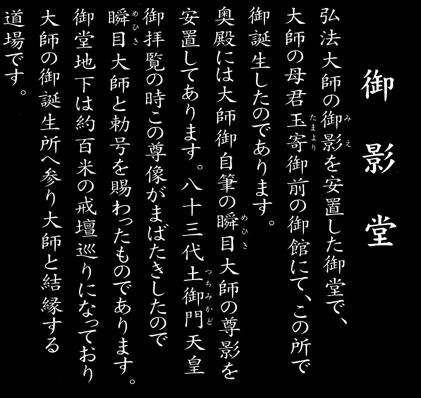 御影堂
弘法大師の御影を安置した御堂で、
大師の母君玉寄御前の御館にて、この所で
御誕生したのであります。
奥殿には大師御自筆の瞬目大師の尊影を
安置してあります。八十三代土御門天皇
御拝覧の時この尊像がまばたきしたので
瞬目大師と勅号を賜わったものであります。
御堂地下は約百米の戒壇巡りになっており
大師の御誕生所へ参り大師と結縁する
道場です。